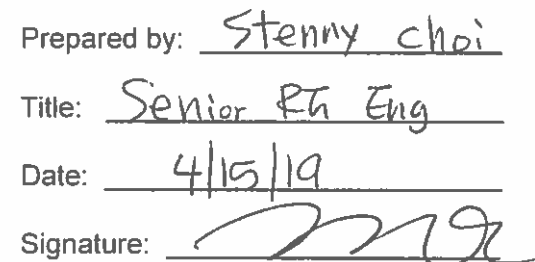 Prepared by: Stenny Choi
Title: Senior RA Eng
Date: 4/15/19
Signature: